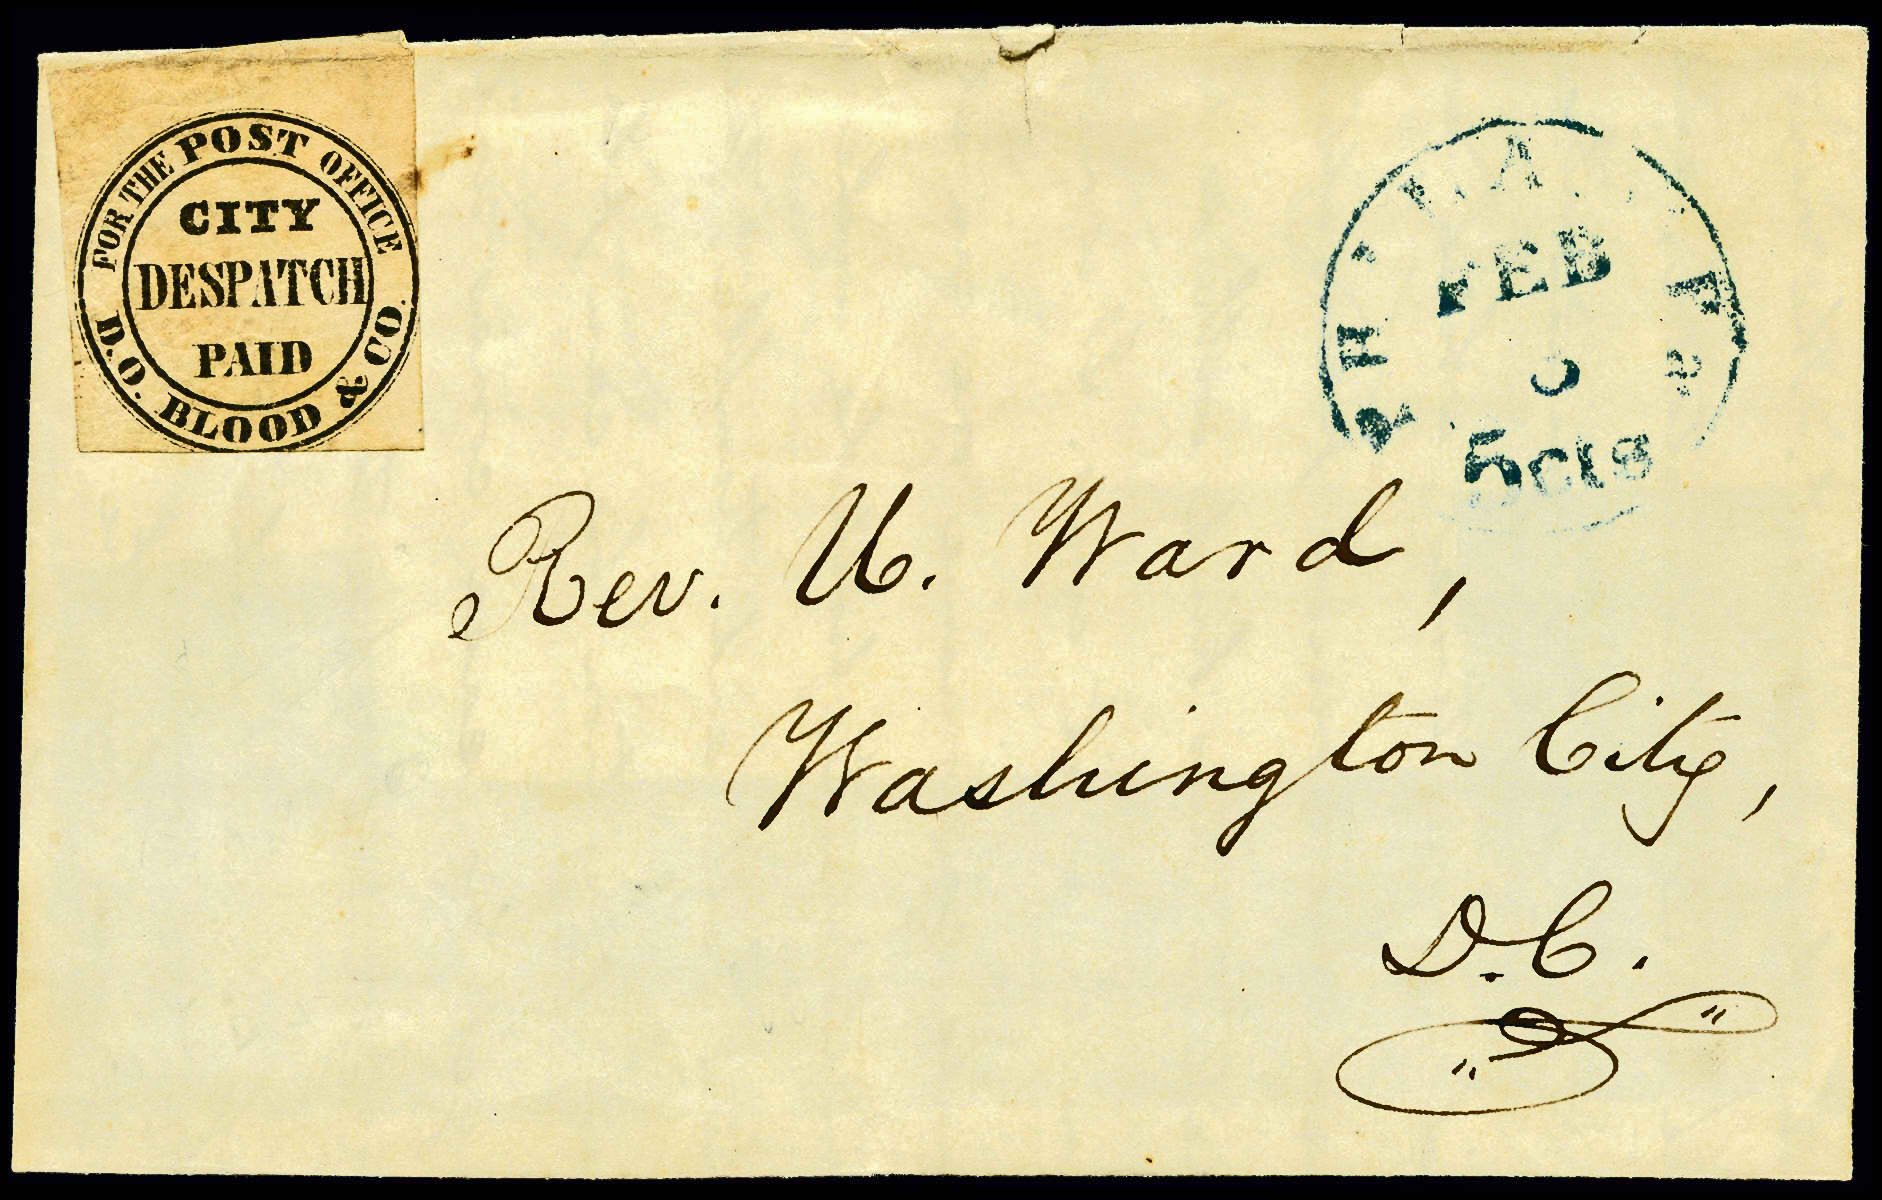 FOR THE POST OFFICE
CITY
DESPATCH
PAID
D.O. BLOOD & CO.
PHILADA Pa
FEB
5
5cts
Rev. U. Ward,
Washington City,
D.C.